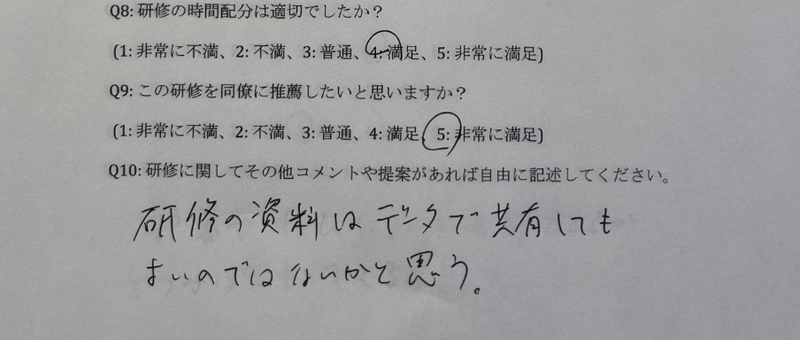 Q8: 研修の時間配分は適切でしたか？
(1: 非常に不満、2: 不満、3: 普通、4: 満足、5: 非常に満足)
Q9: この研修を同僚に推薦したいと思いますか？
(1: 非常に不満、2: 不満、3: 普通、4: 満足、5: 非常に満足)
Q10: 研修に関してその他コメントや提案があれば自由に記述してください。
研修の資料はデータで共有しても
よいのではないかと思う。